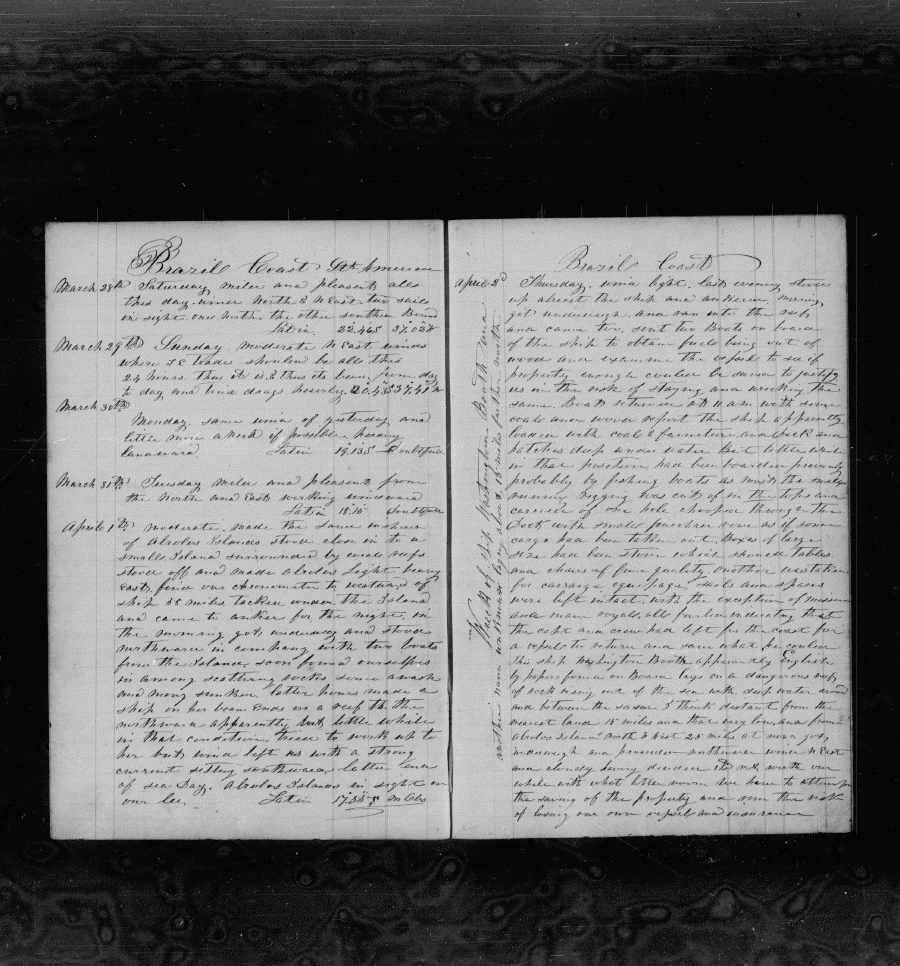 Brazil Coast Sth American
March 28th Saturday milder and pleasant all
this day. winds North & N East. two sails
in sight one North. the other southern Bound
Latin 22.46S 37.02W
March 29th Sunday moderate N East winds
where S E trades should be all this
24 hours thus it is & thus its been from day
to day and time drags heavily 20.43S 37.41W
March 30th
Monday same wind of yesterday and
little more ahead if possible. heading
landward Latin 19.13S Doubtfull
March 31st Tuesday mild and pleasant from
the North and East working windward
Latin 18.15 Doubtfull
April 1st moderate. made the land inshore
of Abrolos Islands stood close in to a
small Island surrounded by coral reefs
stood off and made Abrolos Light bearing
East. find our chronometer to westward of
ship 38 miles tacked under the Island
and came to anker for the night. in
the morning got underway and stood
northward in company with two boats
from the Island. soon found ourselfes
in among scathing rocks some awash
and many sunken latter hours made a
ship on her beam Ends on a reef to the
northward apparently but little while
in that condition. tried to work up to
her but wind left us with a strong
current sitting southward latter end
of sea Day. Abrolos Islands in sight on
our lee. Latin 17.55 S
Brazil Coast
April 2d Thursday. wind light. last evening stood
up abreast the ship and ankered, morning
got underweigh and ran into the reef
and came too. sent two Boats on board
of the ship to obtain fuel being out of
wood and examine the vessel to see if
property enough could be saved to justify
us in the risk of staying and wrecking the
same. Boats returned at 10 am with some
coal and wood report the ship apparently
loaded with coal & furniture and deck and
hatches deep under water But little while
in that position had been boarded previously
probably by fishing boats as most the small
running rigging was cut of in the tops and
carried of one hole chopped through the
Deck with small purchase gone as if some
cargo had been taken out. Boxes of large
size had been stove which showed tables
and chairs of fine quality another
for carrage equipage sails and spars
were left intact with the exception of mizzen
and main royals, all further indicating that
the capt and crew had left for the coast for
a vessel to return and save what he could
This ship Washington Booth apparently English
by papers found on Board lays on a dangerous reef
of rock rising out of the sea with deep water around
and between the same I think distant from the
nearest land 15 miles and that very low, and from
Abrolos Island North & West 28 miles at noon got
underweigh and proceeded northward wind N East
and cloudy having decided its not worth our
while with what little room we have to attempt
the saving of the property and run the risk
of losing our own vessel and insurance
Wreck of ship Washington Booth and
another name unknown laying about 15 miles farther north